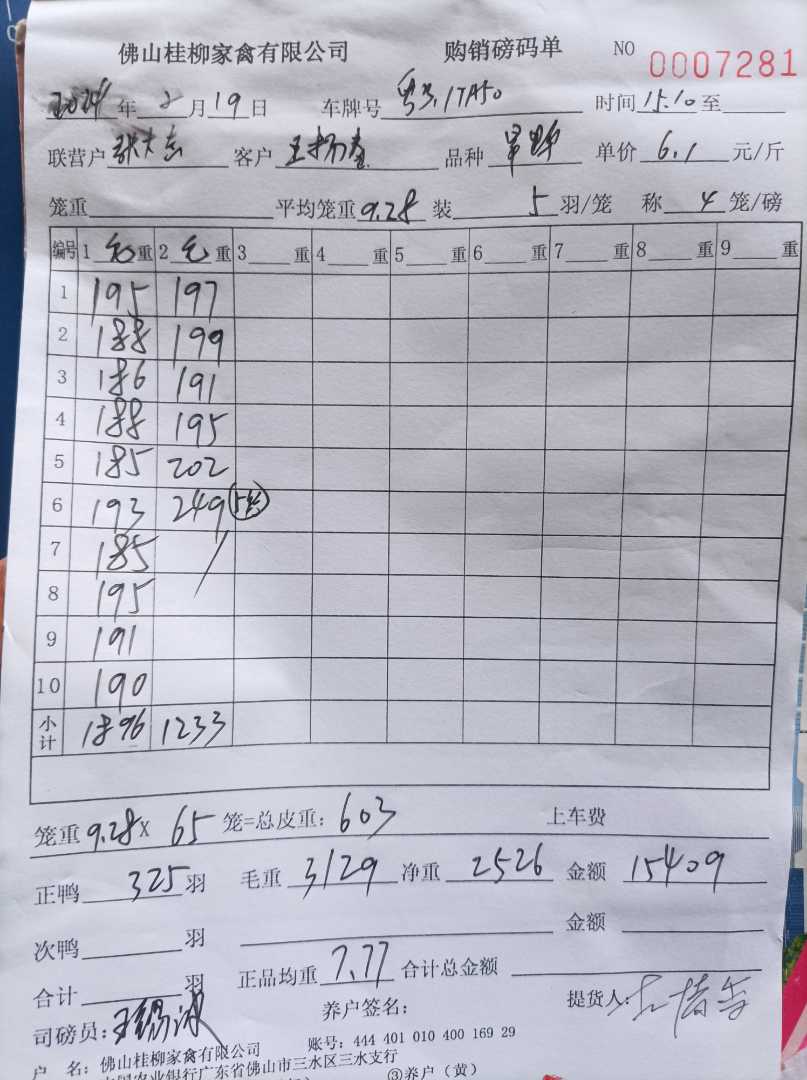 佛山桂柳家禽有限公司 购销磅码单 NO 0007281
2024年 2月19日 车牌号 时间 15.10 至
联营户 客户 品种 单价 6.1 元/斤
笼重 平均笼重 9.28 装 5 羽/笼 称 4 笼/磅
编号 1 毛 重 2 毛 重 3 重 4 重 5 重 6 重 7 重 8 重 9 重
1 195 197
2 188 199
3 186 191
4 188 195
5 185 202
6 193 249
7 185
8 195
9 191
10 190
小计 1896 1233
笼重 9.28 X 65 笼=总皮重: 603 上车费
正鸭 325 羽 毛重 3129 净重 2526 金额 15409
次鸭 羽 金额
合计 羽 正品均重 7.77 合计总金额
司磅员: 养户签名: 提货人:
户 名: 佛山桂柳家禽有限公司 账号: 444 401 010 400 169 29
中国农业银行广东省佛山市三水区三水支行
③养户(黄)